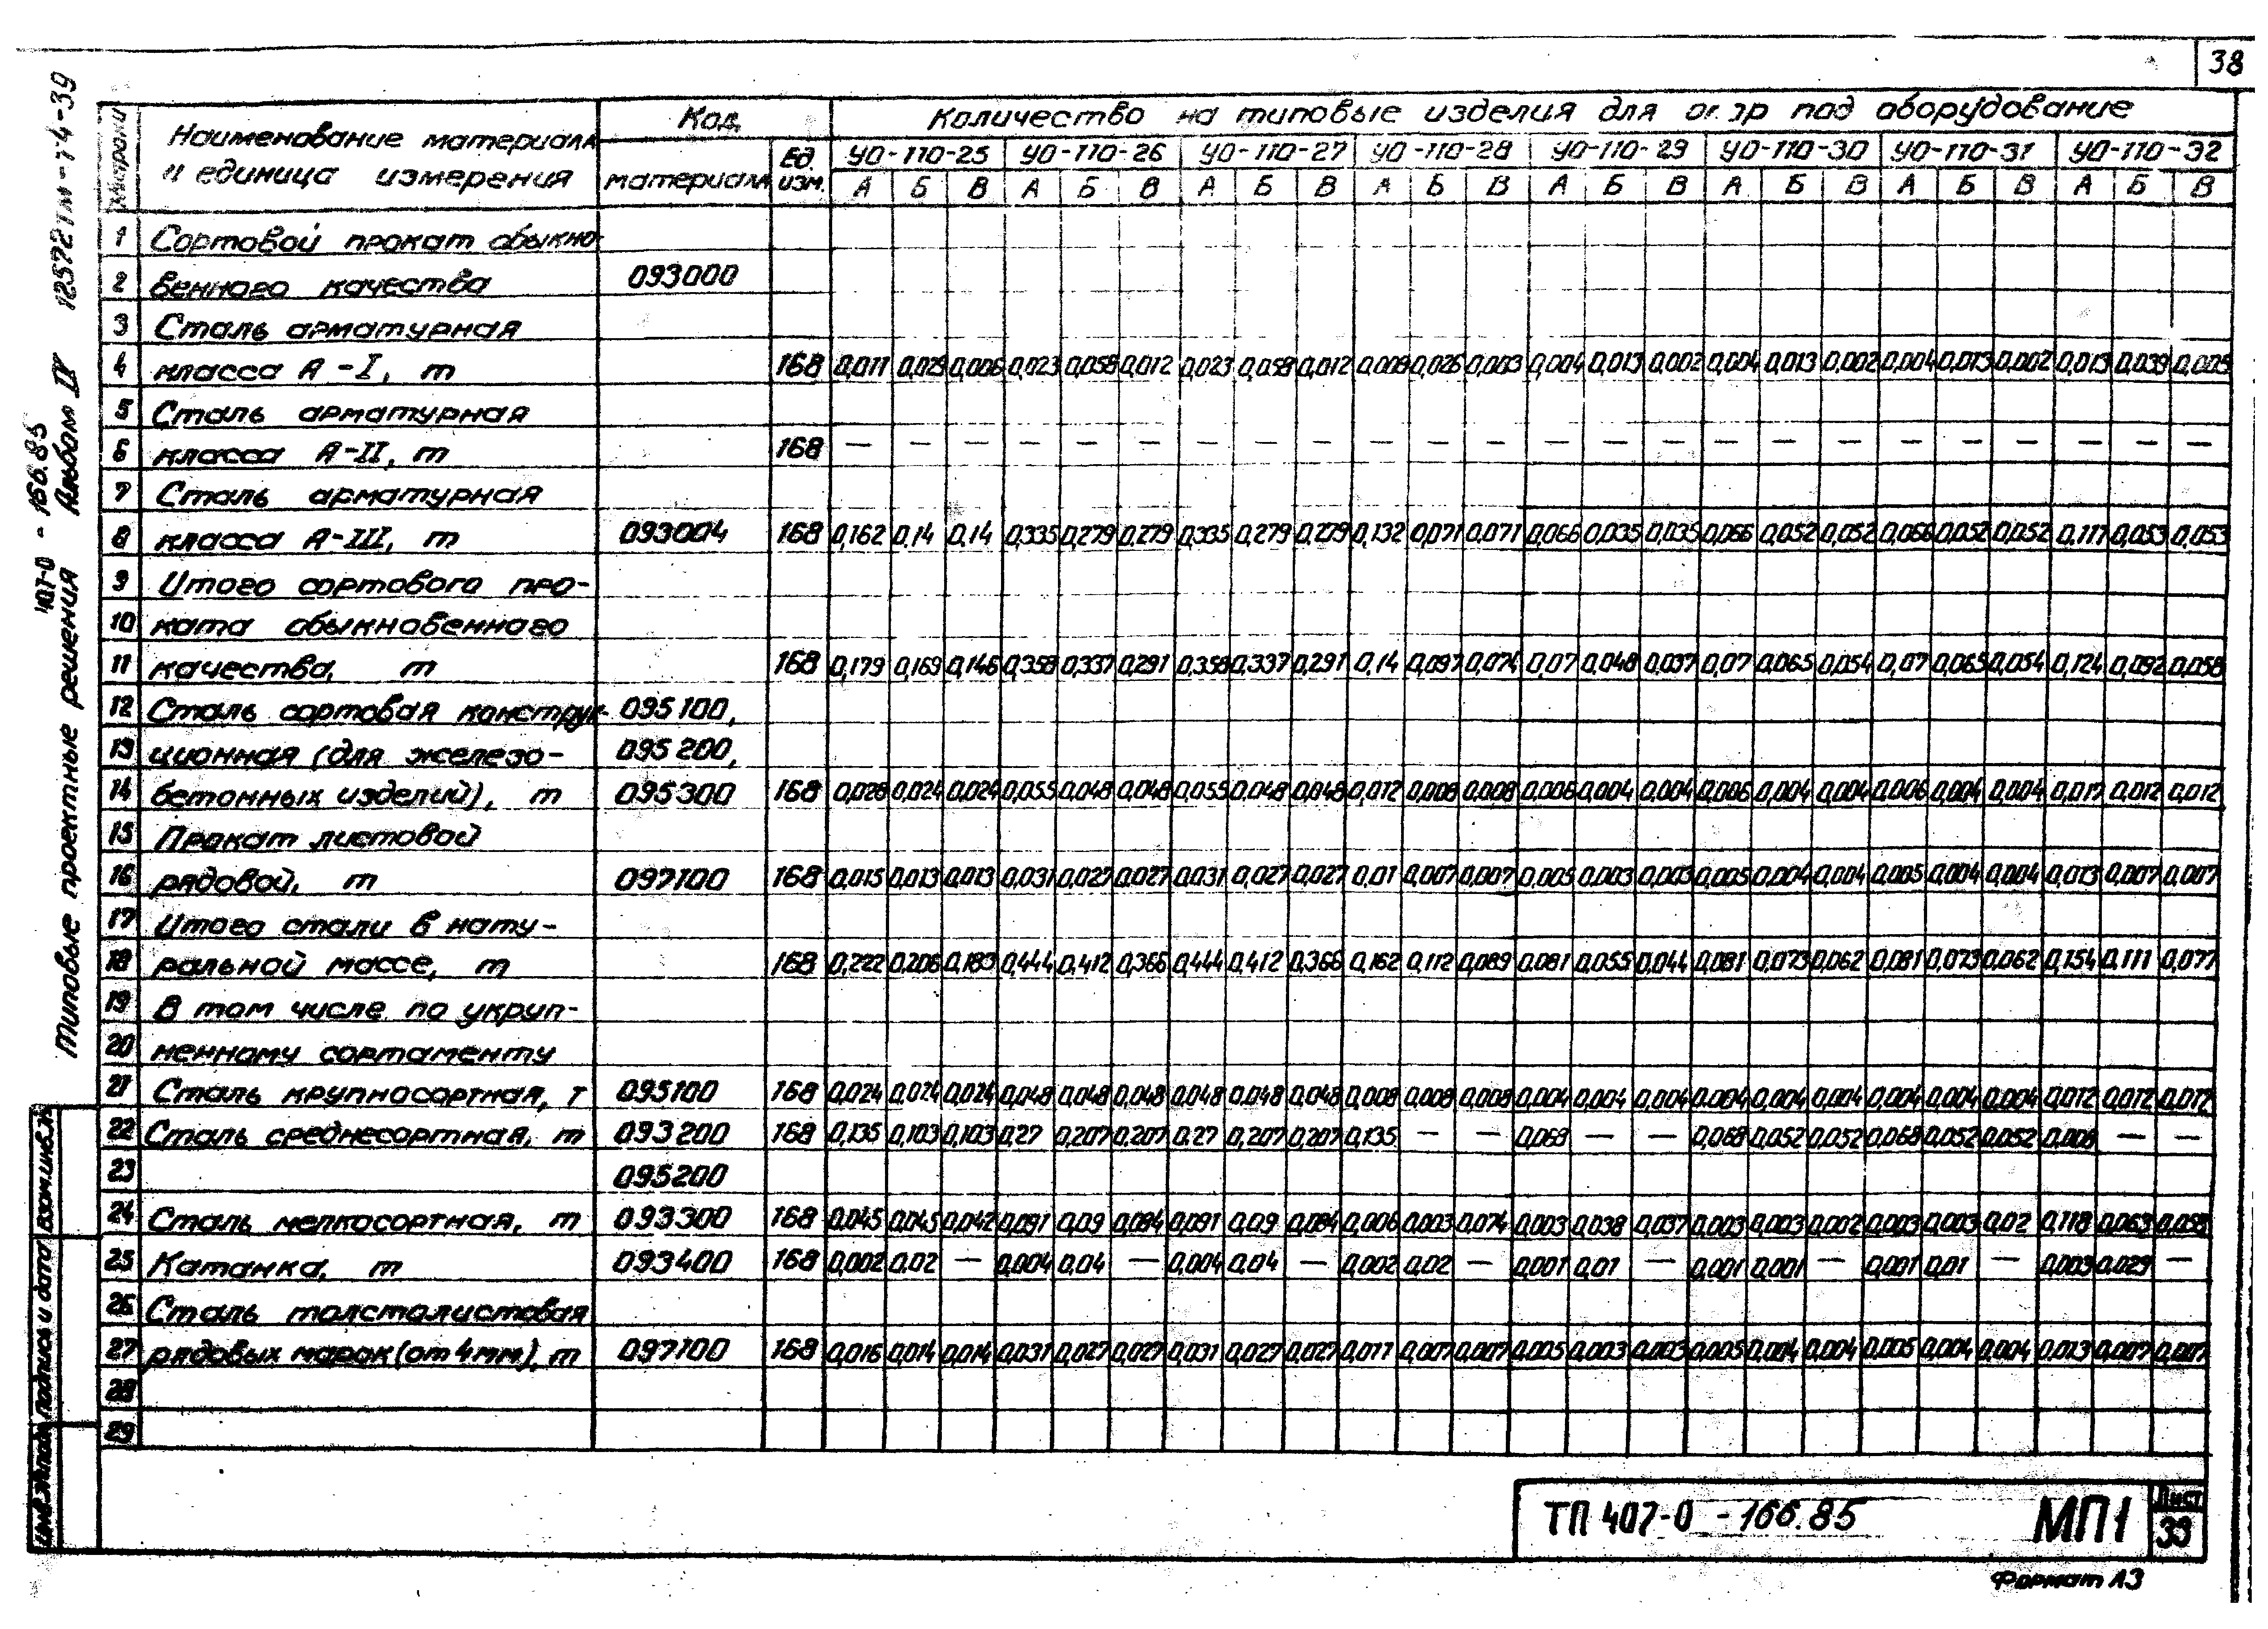 38
12572тм-т4-39
Альбом IV
407-0 - 166.85
Типовые проектные решения
Наименование материала и единица измерения | Код материала | Ед. изм. | Количество на типовые изделия для опор под оборудование
УО-110-25 | УО-110-26 | УО-110-27 | УО-110-28 | УО-110-29 | УО-110-30 | УО-110-31 | УО-110-32
А Б В А Б В А Б В А Б В А Б В А Б В А Б В А Б В
1 Сортовой прокат обыкно-
2 венного качества 093000
3 Сталь арматурная
4 класса А-I, т 168 0,011 0,029 0,006 0,023 0,058 0,012 0,023 0,058 0,012 0,009 0,026 0,003 0,004 0,013 0,002 0,004 0,013 0,002 0,004 0,013 0,002 0,013 0,039 0,005
5 Сталь арматурная
6 класса А-II, т 168 — — — — — — — — — — — — — — — — — — — — — — — —
7 Сталь арматурная
8 класса А-III, т 093004 168 0,162 0,14 0,14 0,335 0,279 0,279 0,335 0,279 0,279 0,132 0,071 0,071 0,066 0,035 0,035 0,066 0,052 0,052 0,066 0,052 0,052 0,111 0,053 0,053
9 Итого сортового про-
10 ката обыкновенного
11 качества, т 168 0,179 0,169 0,146 0,358 0,337 0,291 0,358 0,337 0,291 0,14 0,097 0,074 0,07 0,048 0,037 0,07 0,065 0,054 0,07 0,065 0,054 0,124 0,092 0,058
12 Сталь сортовая конструк- 095100,
13 ционная (для железо- 095200,
14 бетонных изделий), т 095300 168 0,028 0,024 0,024 0,055 0,048 0,048 0,055 0,048 0,048 0,012 0,008 0,008 0,006 0,004 0,004 0,006 0,004 0,004 0,006 0,004 0,004 0,017 0,012 0,012
15 Прокат листовой
16 рядовой, т 097100 168 0,015 0,013 0,013 0,031 0,027 0,027 0,031 0,027 0,027 0,01 0,007 0,007 0,005 0,003 0,003 0,005 0,004 0,004 0,005 0,004 0,004 0,013 0,007 0,007
17 Итого стали в нату-
18 ральной массе, т 168 0,222 0,206 0,183 0,444 0,412 0,366 0,444 0,412 0,366 0,162 0,112 0,089 0,081 0,055 0,044 0,081 0,073 0,062 0,081 0,073 0,062 0,154 0,111 0,077
19 В том числе по укруп-
20 ненному сортаменту
21 Сталь крупносортная, т 095100 168 0,024 0,024 0,024 0,048 0,048 0,048 0,048 0,048 0,048 0,008 0,008 0,008 0,004 0,004 0,004 0,004 0,004 0,004 0,004 0,004 0,004 0,012 0,012 0,012
22 Сталь среднесортная, т 093200 168 0,135 0,103 0,103 0,27 0,207 0,207 0,27 0,207 0,207 0,135 — — 0,068 — — 0,068 0,052 0,052 0,068 0,052 0,052 0,008 — —
23 095200
24 Сталь мелкосортная, т 093300 168 0,045 0,045 0,042 0,091 0,09 0,084 0,091 0,09 0,084 0,006 0,003 0,074 0,003 0,038 0,037 0,003 0,003 0,002 0,003 0,003 0,02 0,118 0,063 0,058
25 Катанка, т 093400 168 0,002 0,02 — 0,004 0,04 — 0,004 0,04 — 0,002 0,02 — 0,001 0,01 — 0,001 0,001 — 0,001 0,01 — 0,003 0,029 —
26 Сталь толстолистовая
27 рядовых марок (от 4мм), т 097100 168 0,016 0,014 0,014 0,031 0,027 0,027 0,031 0,027 0,027 0,011 0,007 0,007 0,005 0,003 0,003 0,005 0,004 0,004 0,005 0,004 0,004 0,013 0,007 0,007
28
29
Взам.инв.№
Подпись и дата
Инв.№подл.
ТП 407-0 -166.85
МП1
Лист
33
Формат А3